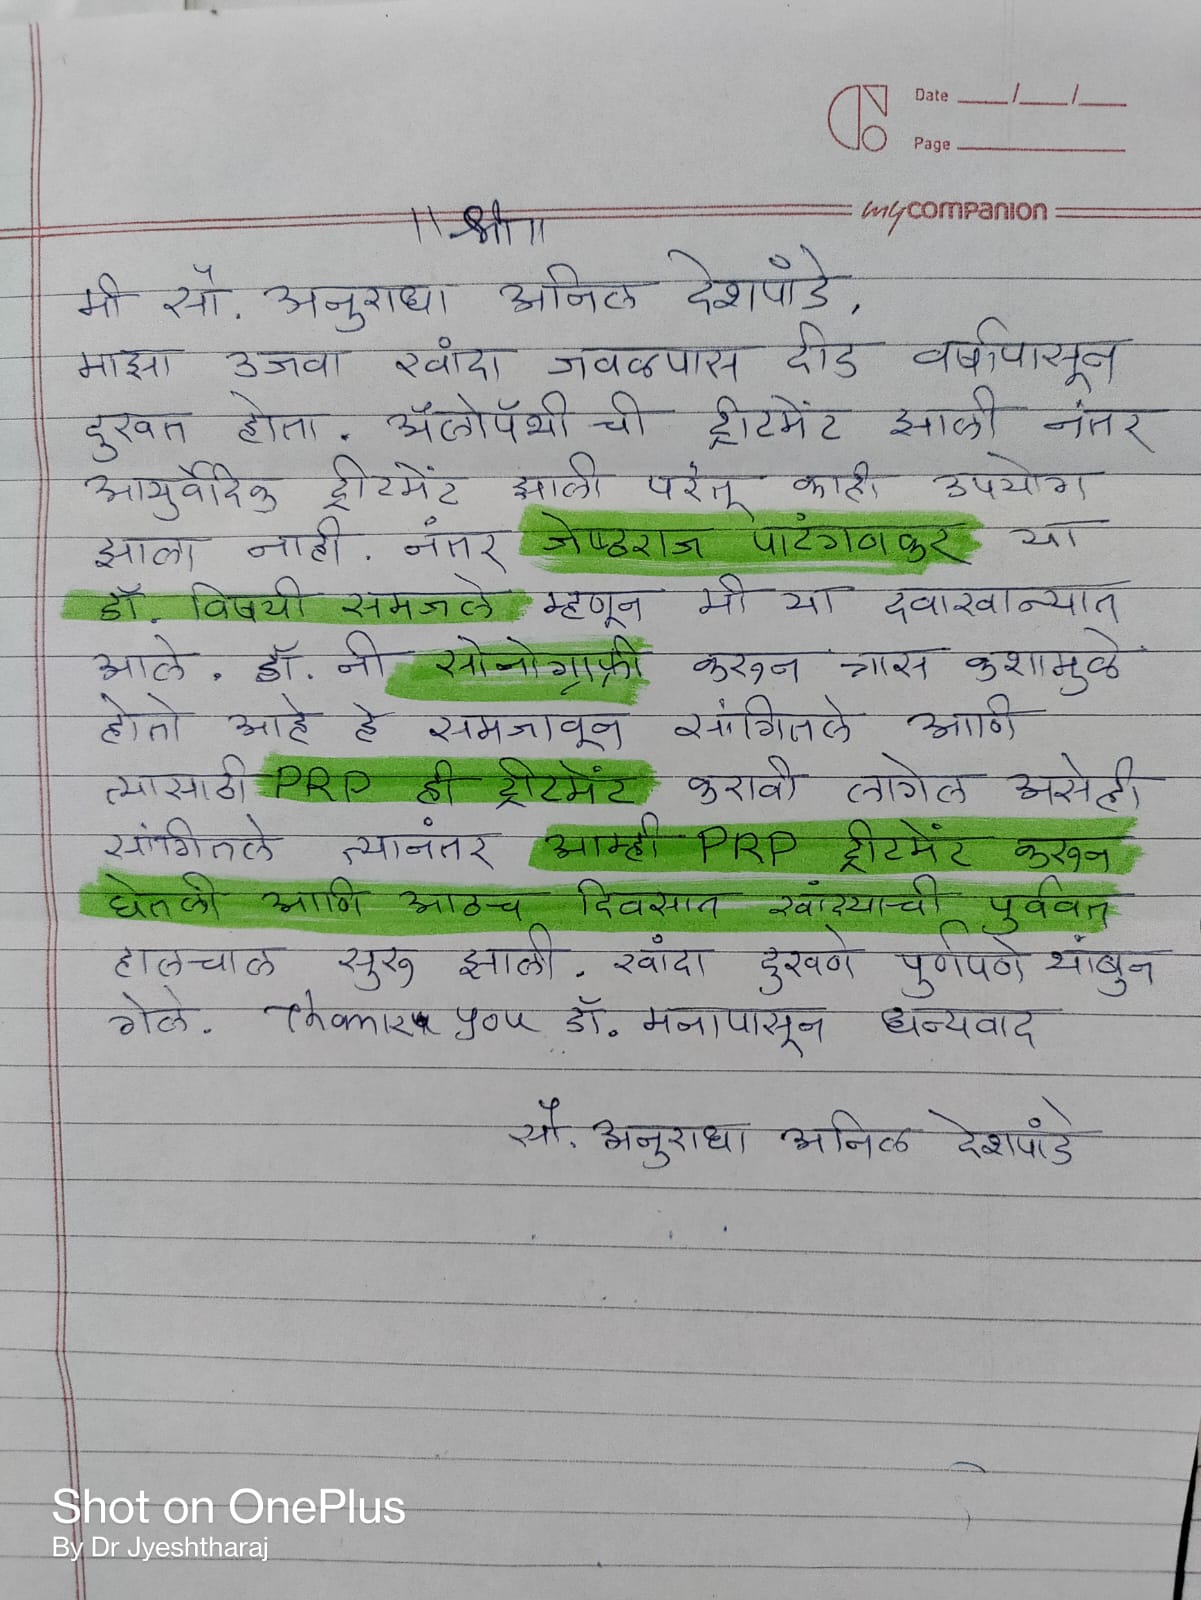 Date __/__/__
Page
mycompanion
॥ श्री ॥
मी सौ. अनुराधा अनिल देशपांडे,
माझा उजवा खांदा जवळपास दीड वर्षापासून
दुखत होता. ॲलोपॅथी ची ट्रीटमेंट झाली नंतर
आयुर्वेदिक ट्रीटमेंट झाली परंतू काही उपयोग
झाला नाही. नंतर जेष्ठराज पाटंगणकर या
डॉ. विषयी समजले म्हणून मी या दवाखान्यात
आले. डॉ. नी सोनोग्राफी करून त्रास कशामुळे
होतो आहे हे समजावून सांगितले आणि
त्यासाठी PRP ही ट्रीटमेंट करावी लागेल असेही
सांगितले त्यानंतर आम्ही PRP ट्रीटमेंट करून
घेतली आणि आठच दिवसात खांद्याची पुर्ववत
हालचाल सुरू झाली. खांदा दुखणे पुर्णपणे थांबुन
गेले. Thank you डॉ. मनापासून धन्यवाद
सौ. अनुराधा अनिल देशपांडे
Shot on OnePlus
By Dr Jyeshtharaj